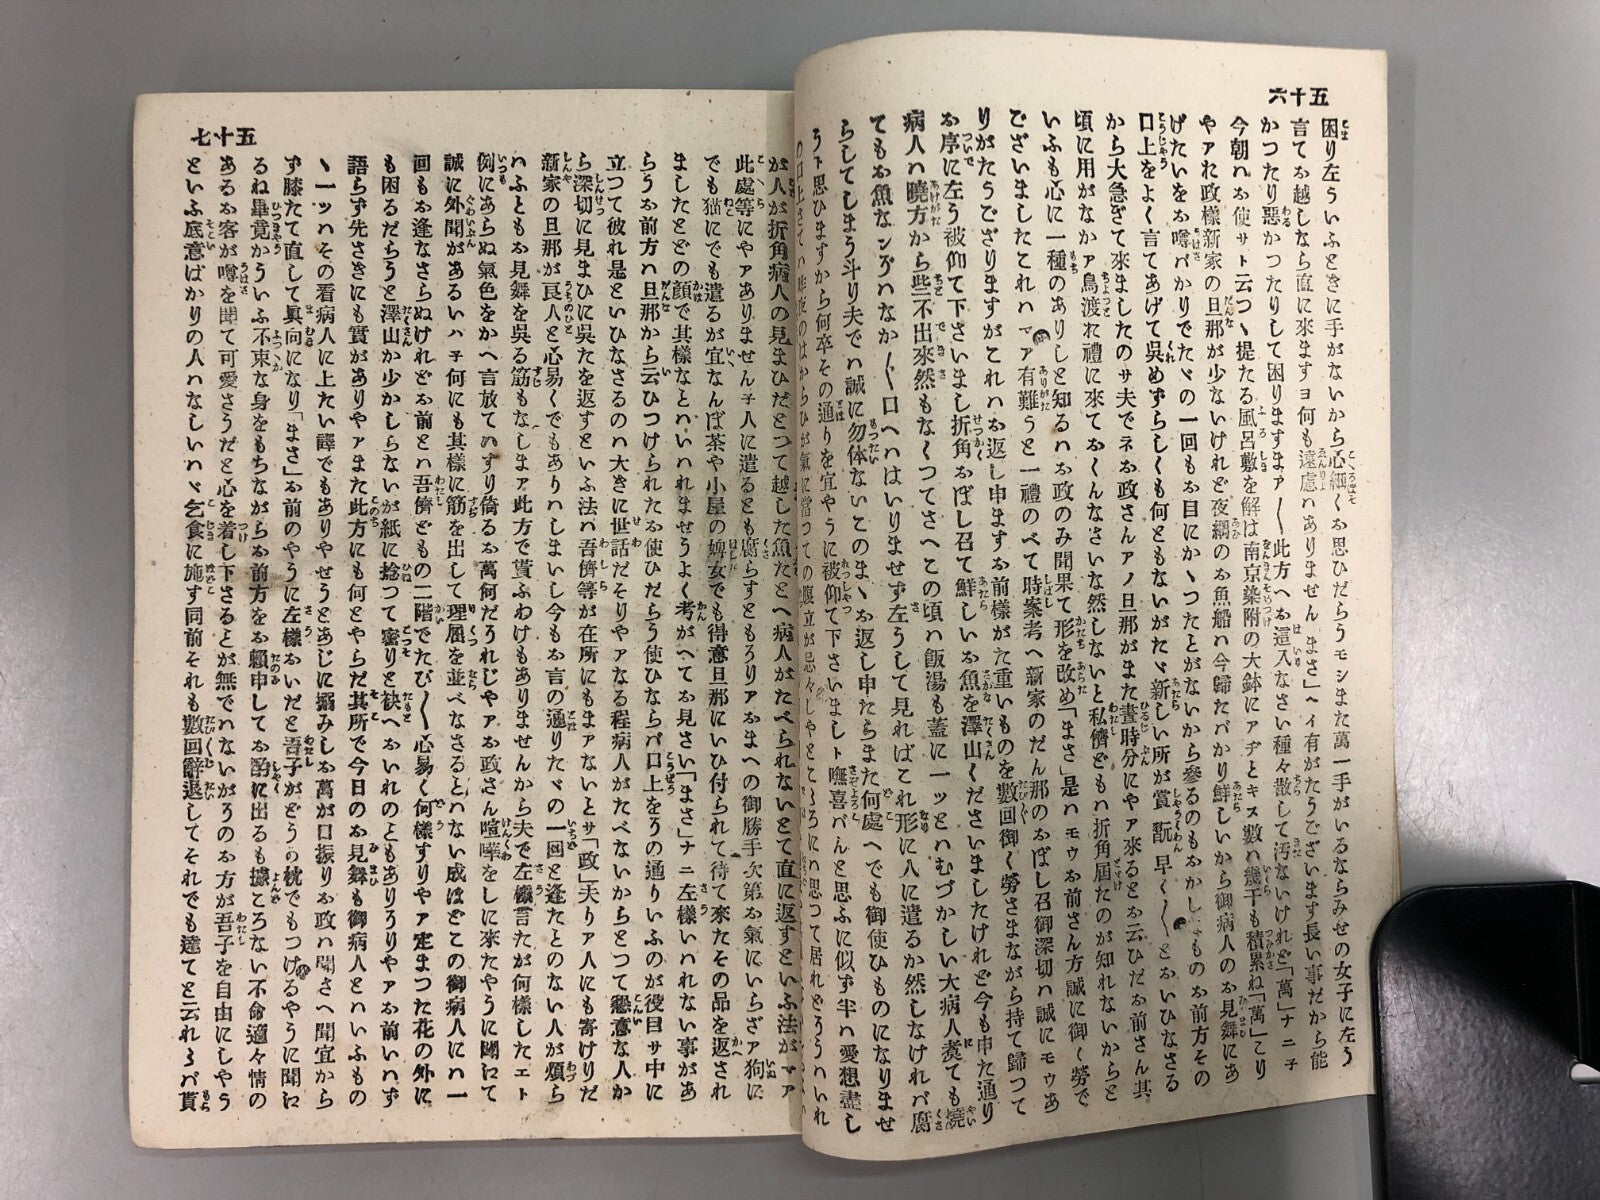 五十六
困り左ういふときに手がないから心細くお思ひだらうモシまた萬一手がいるならみせの女子に左う
言てお越しなら直に來ますヨ何も遠慮ハありません まさ」ヘイ有がたうございます長い事だから能
かつたり惡かつたりして困りますまア〳〵此方へお這入なさい種々散して汚ないけれど「萬」ナニ子
今朝ハお使サト云つゝ提たる風呂敷を解ば南京染附の大鉢にアヂとキス數ハ幾干も積累ね「萬」こり
やアれ政樣新家の旦那が少ないけれど夜網のお魚船ハ今歸たバかり鮮しいから御病人のお見舞にあ
げたいをお噂バかりでたヾの一回もお目にかゝつたとがないから參るのもおかしなものお前方その
口上をよく言てあげて呉めずらしくも何ともないがたヾ新しい所が賞翫早く〳〵とおいひなさる
から大急ぎて來ましたのサ夫でネお政さんアノ旦那がまた晝時分にやア來るとお云ひだお前さん其
頃に用がなかア鳥渡れ禮に來ておくんなさいな然しないと私儕どもハ折角屆たのが知れないからと
いふも心に一種のありしと知るハお政のみ聞果て形を改め「まさ」是ハモウお前さん方誠に御く勞で
ございましたこれハマア有難うと一禮のべて時案考へ新家のだん那のおぼし召御深切ハ誠にモウあ
りがたうござりますがこれハお返し申ますお前樣がた重いものを數回御く勞さまながら持て歸つて
お序に左う被仰て下さいまし折角おぼし召て鮮しいお魚を澤山くださいましたけれど今も申た通り
病人ハ曉方から些不出來然もなくつてさへこの頃ハ飯湯も蓋に一ッとハむづかしい大病人煑ても燒
てもお魚なンぞハなか〳〵口へハはいりませず左うして見ればこれ形に人に遣るか然しなけれバ腐
らしてしまう斗り夫でハ誠に勿体ないこのまゝお返し申たらまた何處へでも御使ひものになりませ
うト思ひますから何卒その通りを宜やうに被仰て下さいましト嘸喜バんと思ふに似ず半ハ愛想盡し
五十七
が人が折角病人の見まひだとつて越した魚たとへ病人がたべられないとて直に返すといふ法がマア
此處等にやアありません子人に遣るとも腐らすともろりアおまへの御勝手次第お氣にいらざア狗に
でも猫にでも遣るが宜なんば茶や小屋の婢女でも得意旦那にいひ付られて待て來たその品を返され
ましたとどの顏で其樣なとハいハれませうよく考がへてお見さい「まさ」ナニ左樣いハれない事があ
らうお前方ハ旦那から云ひつけられたお使ひだらう使ひならバ口上をうの通りいふのが役目サ中に
立つて彼れ是といひなさるのハ大きに世話だそりやアなる程病人がたべないからとつて懇意な人か
ら深切に見まひに呉たを返すといふ法ハ吾儕等が在所にもまアないとサ「政」天りア人にも寄けりだ
新家の旦那が良人と心易くでもありハしまいし今もお言の通りたヾの一回と逢たとのない人が煩ら
ハふともお見舞を呉る筋もなしまア此方で貰ふわけもありませんから夫で左樣言たが何樣したエト
例にあらぬ氣色をかへ言放てハすり倚るお萬何だろれじやアお政さん喧嘩をしに來たやうに聞にて
誠に外聞があるいハ子何にも其樣に筋を出して理屈を並べなさるとハない成ほどこの御病人にハ一
回もお逢なさらぬけれどお前とハ吾儕どもの二階でたび〳〵心易く何樣すりやア定まつた花の外に
も困るだらうと澤山か少かしらないが紙に捻つて密りと袂へおいれのともありろりやアお前いハず
語らず先さきにも實がありやアまた此方にも何とやらだ其所で今日のお見舞も御病人とハいふもの
ゝ一ッハその看病人に上たい譯でもありやせうとあじに搦みしお萬が口振りお政ハ聞さへ聞宜から
ず膝たて直して眞向になり「まさ」お前のやうに左樣おいだと吾子がどうの枕でもつけるやうに聞に
るね畢竟かういふ不束な身をもちながらお前方をお頼申してお酌に出るも據ころない不命適々情の
あるお客が噂を聞て可愛さうだと心を着し下さるとが無でハないがろのお方が吾子を自由にしやう
といふ底意ばかりの人ハなしいハヾ乞食に施す同前それも數回辭退してそれでも達てと云れゝバ貰